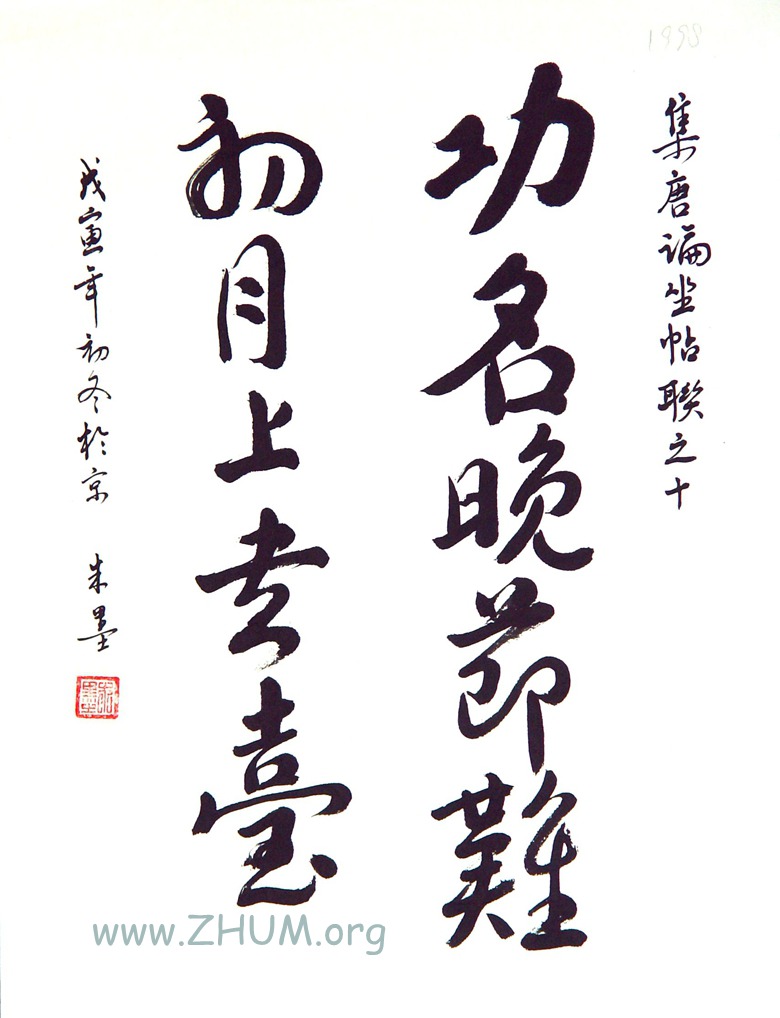 1998
集唐論坐帖聯之十
功名晚節難
初月上臺
戊寅年初冬於京 朱墨
www.ZHUM.org